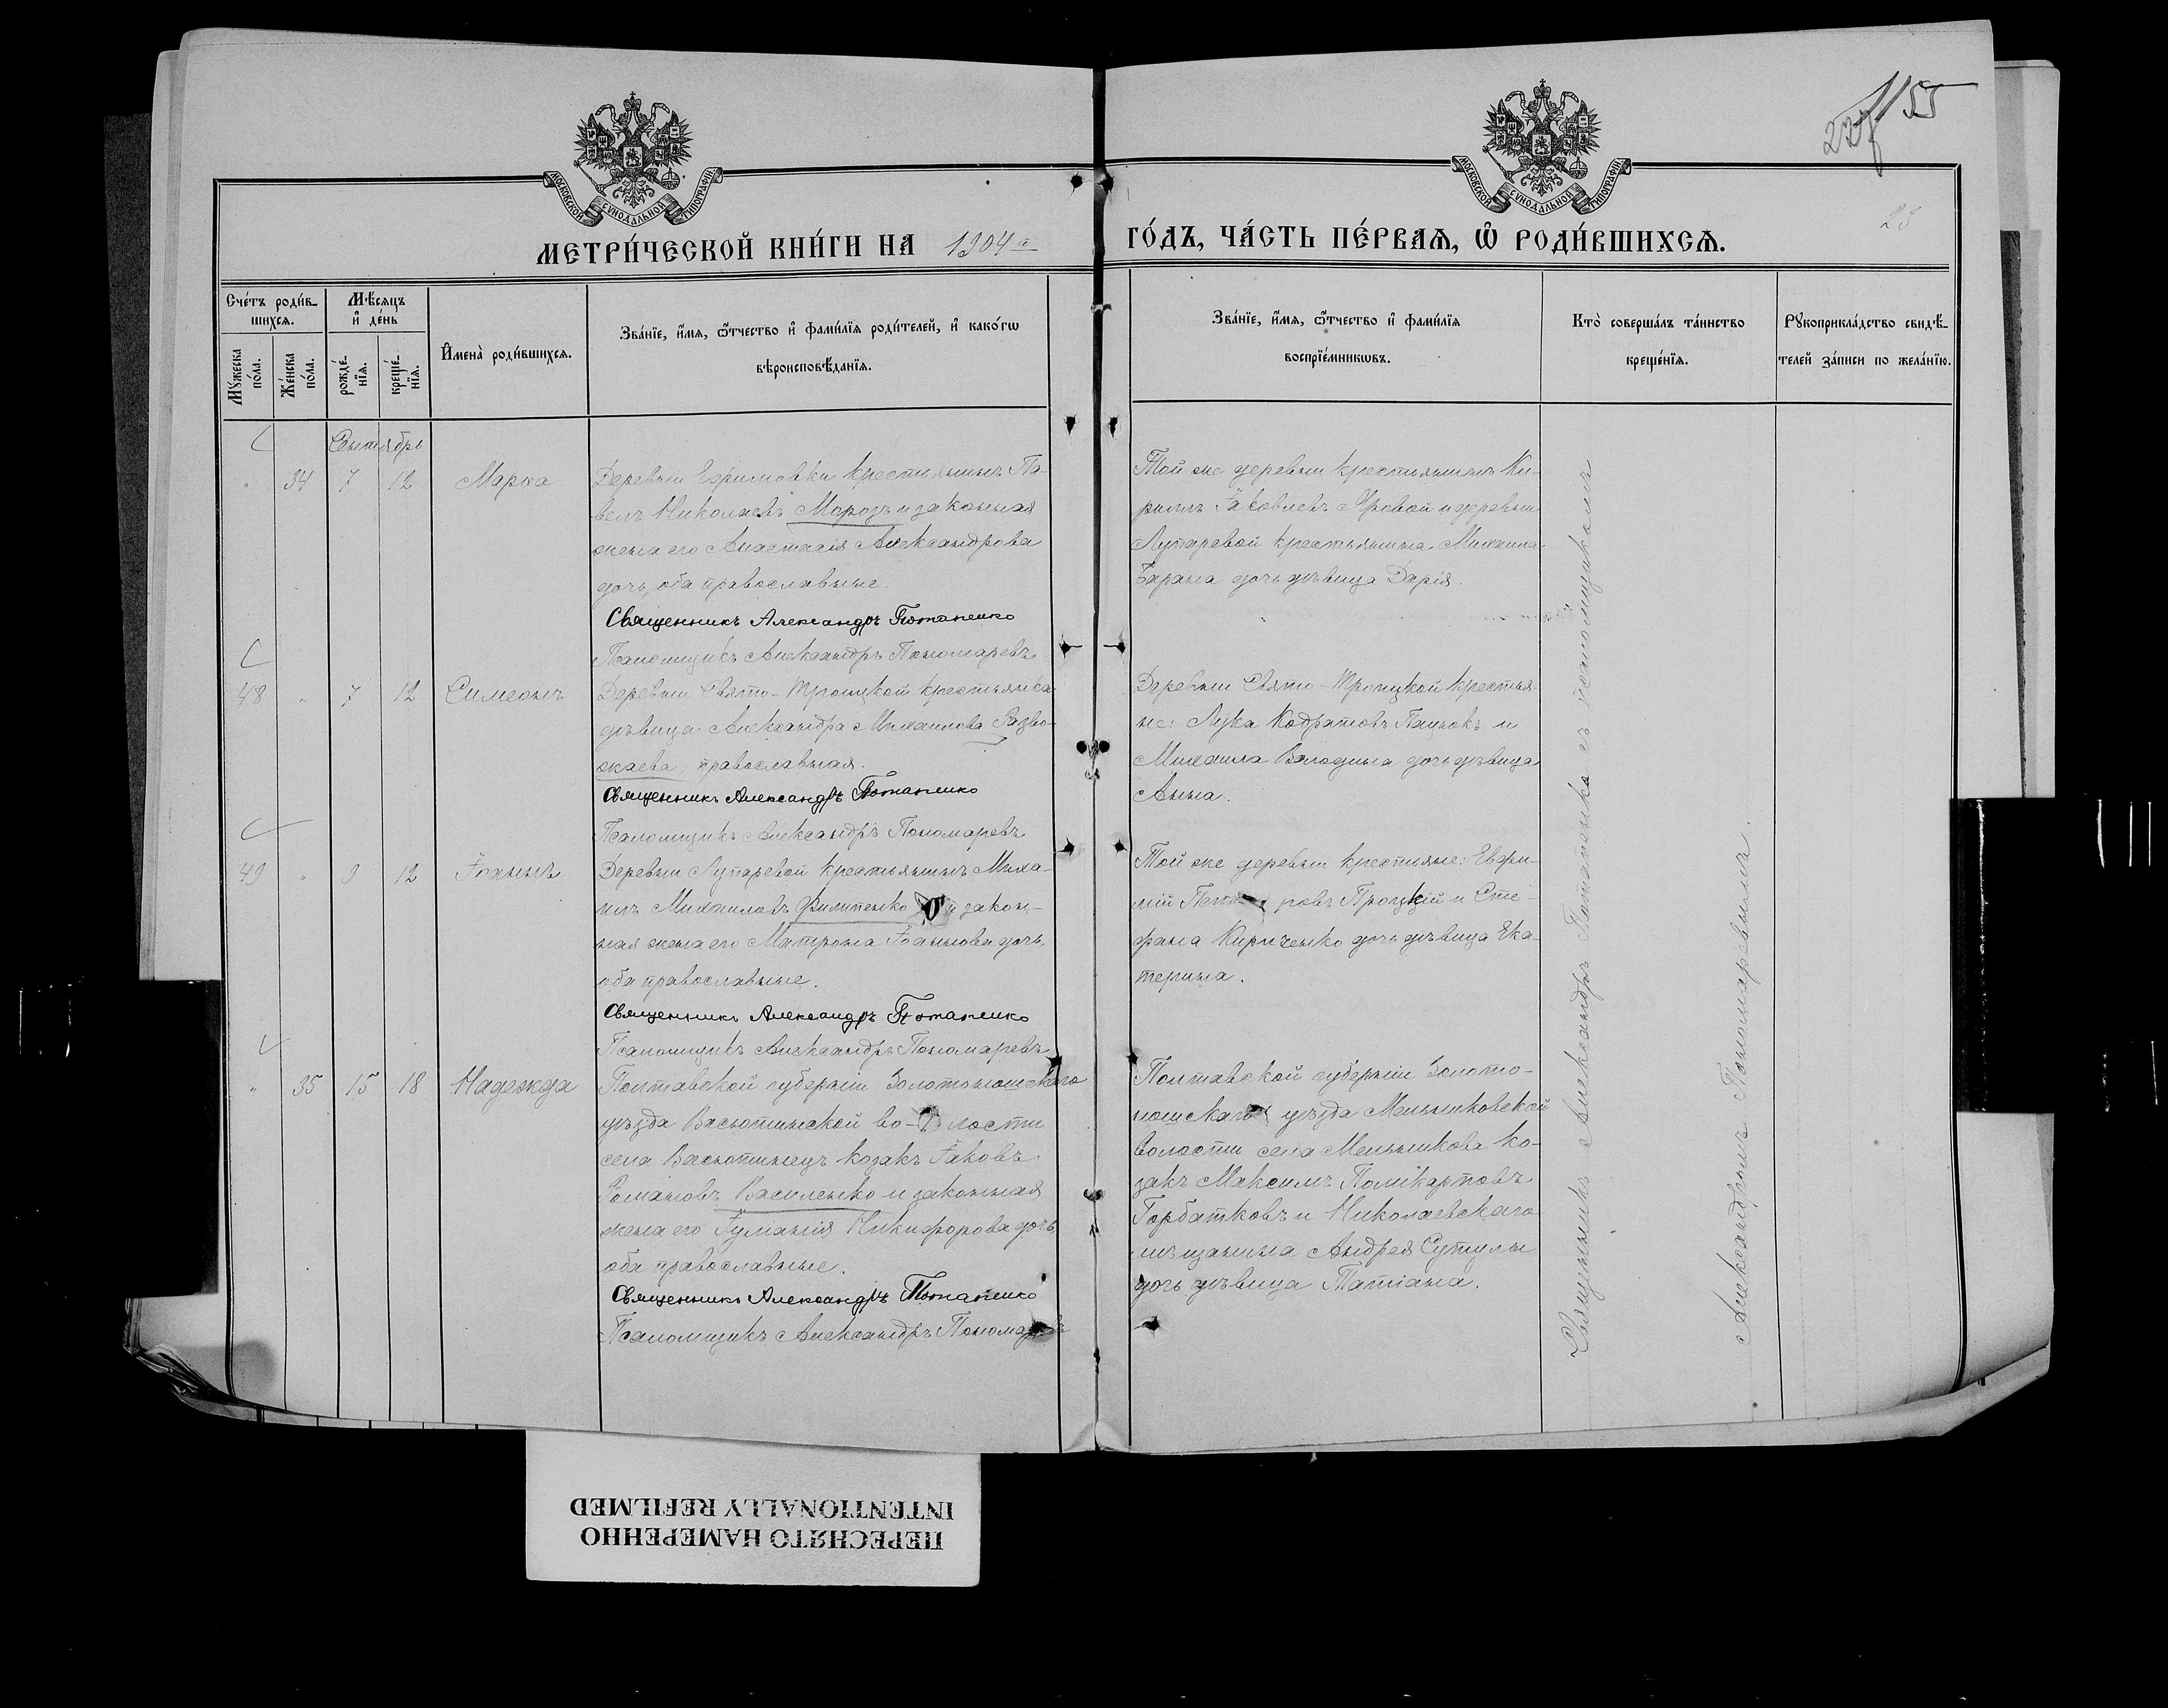 227 55
23
МОСКОВСКОЙ СѴНОДАЛЬНОЙ ТИПОГРАФІИ
МОСКОВСКОЙ СѴНОДАЛЬНОЙ ТИПОГРАФІИ
МЕТРИ́ЧЕСКОЙ КНИ́ГИ НА 1904 г.
ГО́ДЪ, ЧА́СТЬ ПЕ́РВАѦ, Ѡ҆ РОДИ́ВШИХСѦ.
Сче́тъ роди́в-
шихсѧ.
Мѣ́сѧцъ
и҆ де́нь
Мꙋ́жеска
по́ла.
Же́нска
по́ла.
рожде́-
нїѧ.
креще́-
нїѧ.
И҆мена̀ роди́вшихсѧ.
Зва́нїе, и҆́мѧ, ѻ҆́тчество и҆ фами́лїѧ роди́телей, и҆ како́гѡ
вѣроисповѣ́данїѧ.
Зва́нїе, и҆́мѧ, ѻ҆́тчество и҆ фами́лїѧ
воспрїе́мникѡвъ.
Кто̀ соверша́лъ та́инство
креще́нїѧ.
Рꙋкоприкла́дство свидѣ́-
телей за́писи по жела́нїю.
Сентябрь
" 34 7 12 Марѳа
Деревни Ефимовки крестьянинъ Па-
велъ Николаевъ Морозъ и законная
жена его Анастасія Александрова
дочь, оба православные.
Священникъ Александръ Потапенко
Псаломщикъ Александръ Пономаревъ
Той же деревни крестьянинъ Ки-
риллъ Іаковлевъ Яровой и деревни
Лупаревой крестьянина Михаила
Барана дочь дѣвица Дарія.
48 " 7 12 Симеонъ
Деревни Свято-Троицкой крестьянка
дѣвица Александра Михаилова Разво-
жаева, православная.
Священникъ Александръ Потапенко
Псаломщикъ Александръ Пономаревъ
Деревни Свято-Троицкой крестья-
не: Лука Кодратовъ Пацюкъ и
Михаила Володина дочь дѣвица
Анна.
49 " 9 12 Іоаннъ
Деревни Лупаревой крестьянинъ Миха-
илъ Михаиловъ Филипенко и закон-
ная жена его Матрона Іоаннова дочь,
оба православные.
Священникъ Александръ Потапенко
Псаломщикъ Александръ Пономаревъ
Той же деревни крестьяне: Евфи-
мій Петровъ Троцкій и Сте-
фана Кириченко дочь дѣвица Ека-
терина.
" 35 15 18 Надежда
Полтавской губерніи Золотоношскаго
уѣзда Васютинской во-лости
села Васютинецъ козакъ Іаковъ
Романовъ Василенко и законная
жена его Іуліанія Никифорова дочь,
оба православные.
Священникъ Александръ Потапенко
Псаломщикъ Александръ Пономаревъ
Полтавской губерніи Золото-
ношскаго уѣзда Мельниковской
волости села Мельникова ко-
закъ Максимъ Поликарповъ
Горбатковъ и Николаевскаго
мѣщанина Андрея Сутулы
дочь дѣвица Татіана.
Священникъ Александръ Потапенко съ псаломщикомъ
Александромъ Пономаревымъ.
ПЕРЕСНЯТО НАМЕРЕННО
INTENTIONALLY REFILMED